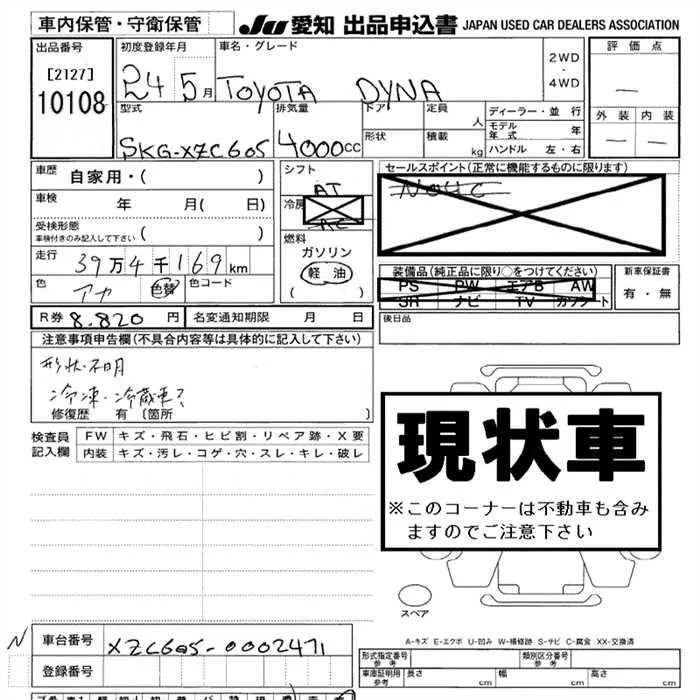 車内保管・守衛保管 JU 愛知 出品申込書 JAPAN USED CAR DEALERS ASSOCIATION
出品番号 初度登録年月 車名・グレード 2WD・4WD 評価点
[2127] 24 5月 TOYOTA DYNA —
10108 型式 排気量 ドア 定員 人 ディーラー・並行 外装 内装
SKG-XZC605 4000cc 形状 積載 kg モデル年式 年 — —
ハンドル 左・右
車歴 自家用・( ) シフト AT セールスポイント(正常に機能するものに限ります)
車検 年 月( 日) 冷房 AC NO4C
受検形態 ( )
車検付きのみ記入して下さい
燃料
走行 39万4千169km ガソリン 装備品(純正品に限り○をつけてください) 新車保証書
色 アカ 色替 色コード 軽油 PS PW エアB AW 有・無
( ) SR ナビ TV カワシート
R券 8.820円 名変通知期限 月 日 後日品
注意事項申告欄(不具合内容等は具体的に記入して下さい)
形状不明
冷凍・冷蔵車?
修復歴 有 [箇所 ]
検査員記入欄 FW キズ・飛石・ヒビ割・リペア跡・X要
内装 キズ・汚レ・コゲ・穴・スレ・キレ・破レ
現状車
※このコーナーは不動車も含み
ますのでご注意下さい
スペア
A-キズ E-エクボ U-凹み W-補修跡 S-サビ C-腐食 XX-交換済
N 車台番号 XZC605-0002471 形式指定番号 参考 類別区分番号 参考
登録番号 車庫証明用 参考 長さ cm 幅 cm 高さ cm